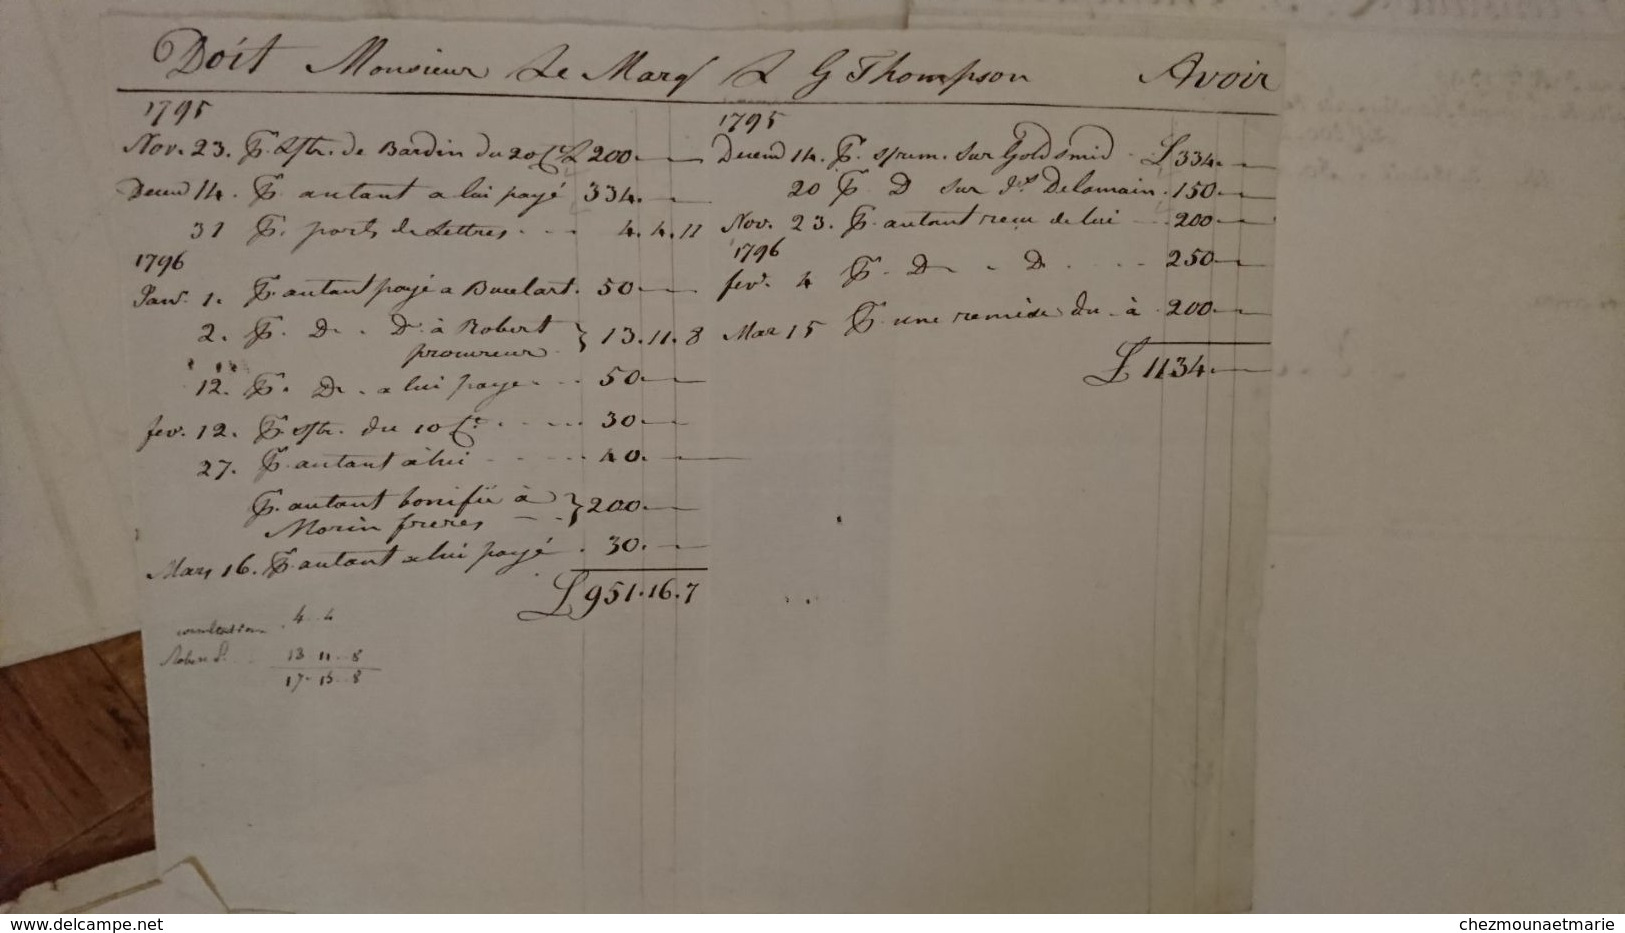 Doit Monsieur Le Marq L G Thompson Avoir
1795
Nov. 23. P. de Bardin du 20 £ 200.
Decem 14. P. autant a lui payé 334.
31 P. ports de Lettres 4. 4. 11
1796
Janv. 1. P. autant payé a Bucelart. 50
2. P. D D. à Robert procureur } 13. 11. 8
12. P. D a lui paye 50
fev. 12. P. du 10 30
27. P. autant à lui 40.
P. autant bonifié à Morin freres } 200
Mars 16. P. autant a lui payé 30.
£ 951. 16. 7
4 4
Robert 13 11 8
17 15 8
1795
Decem 14. P. sur Goldsmid £ 334.
20 P. D sur Delamain. 150
Nov. 23. P. autant recu de lui 200
1796
fev. 4 P. D D. 250
Mar 15 P. une remise du à 200
£ 1134.
www.delcampe.net
chezmounaetmarie